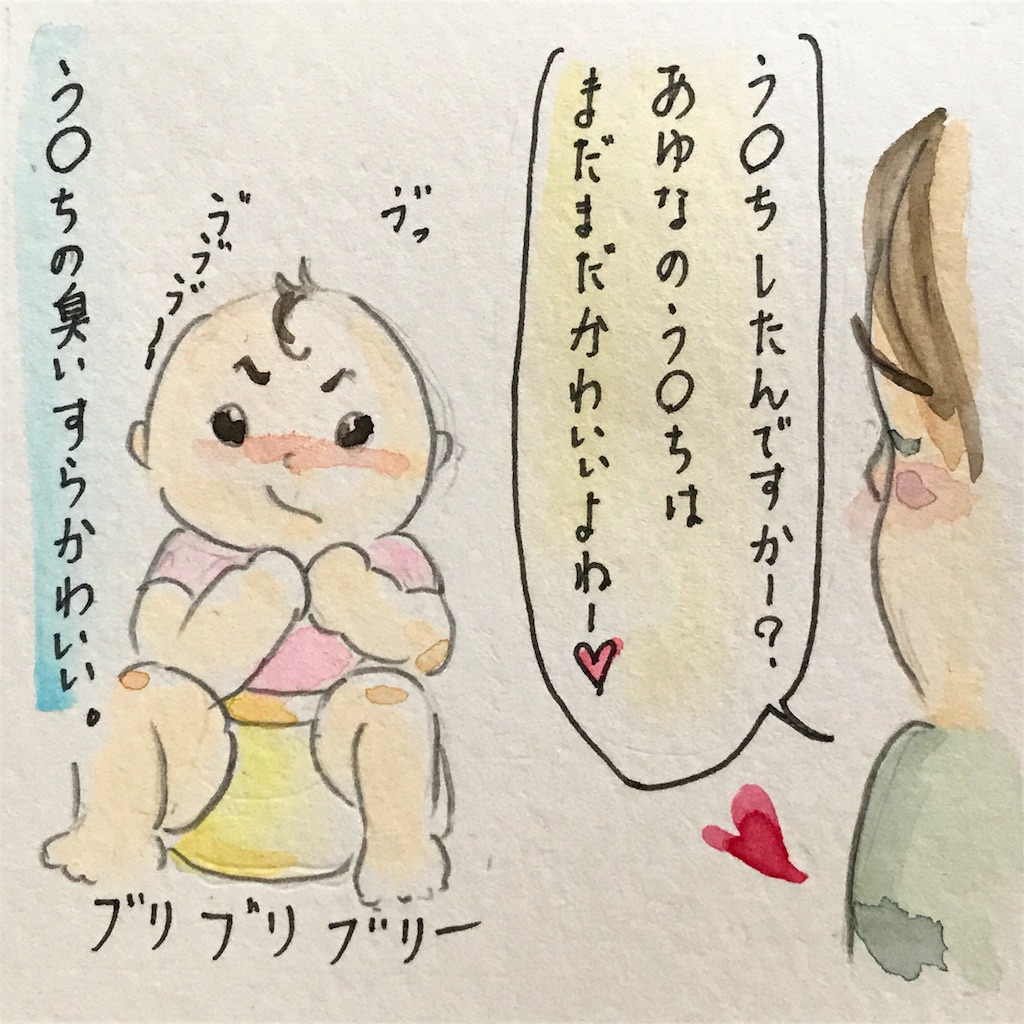 う〇ちしたんですかー?
あゆなのう〇ちは
まだまだかわいいよわー♥
ブッ
ブブブー
う〇ちの臭いすらかわいい。
ブリブリブリー